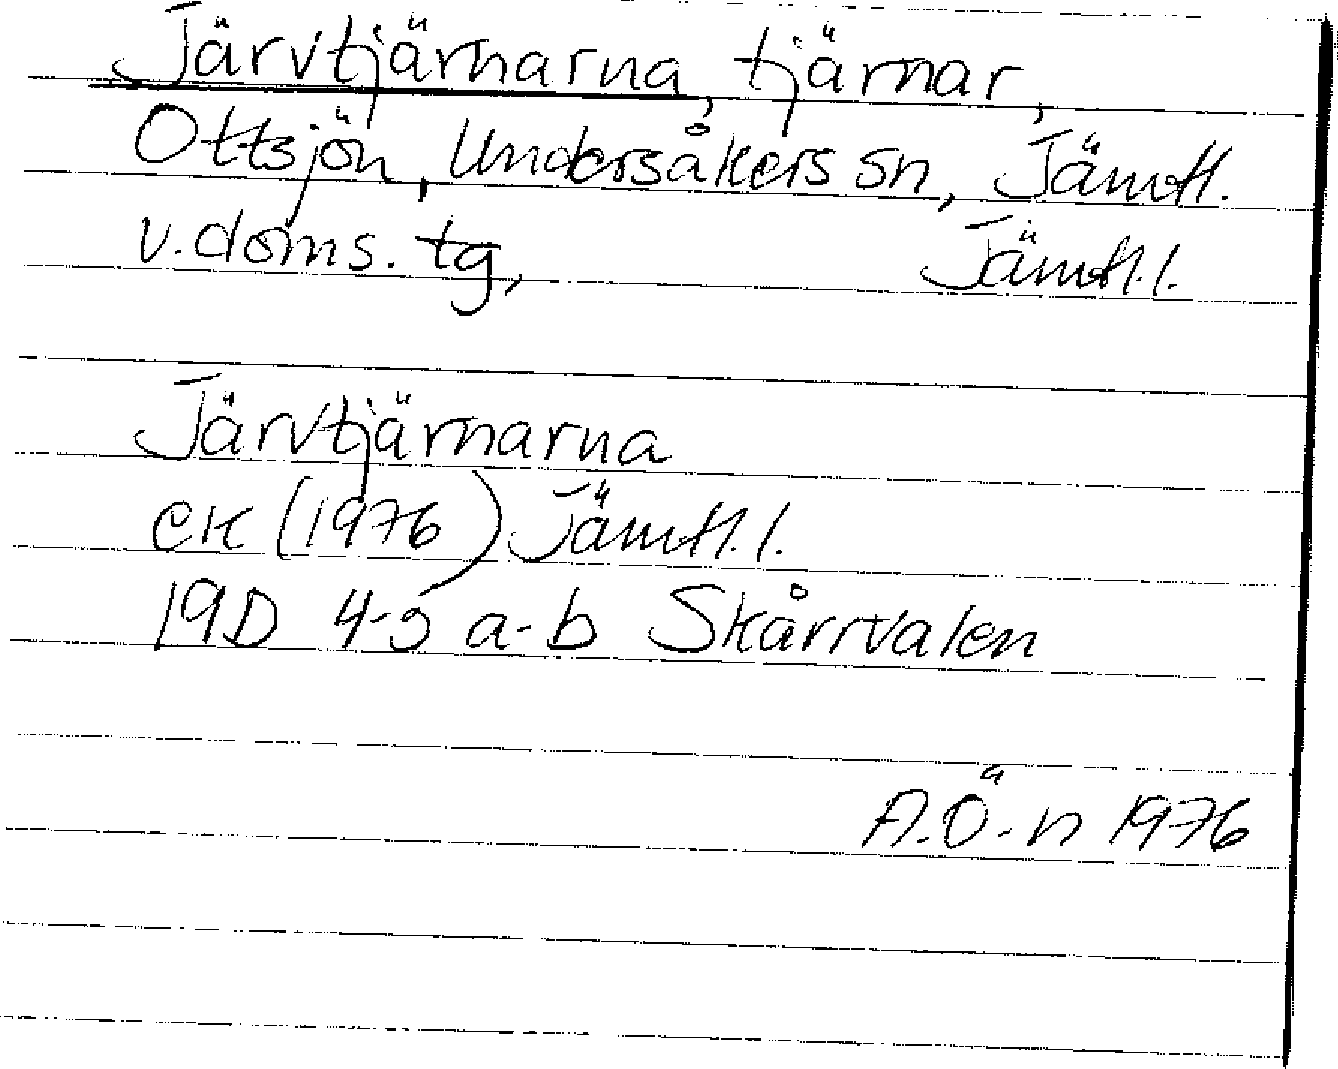 Järvtjärnarna, tjärnar,
Ottsjön, Undersåkers sn, Jämtl.
v. doms. tg, Jämtl.l.
Järvtjärnarna
ek (1976) Jämtl.l.
19D 4-5 a-b Skårrvalen
A.Ö-n 1976